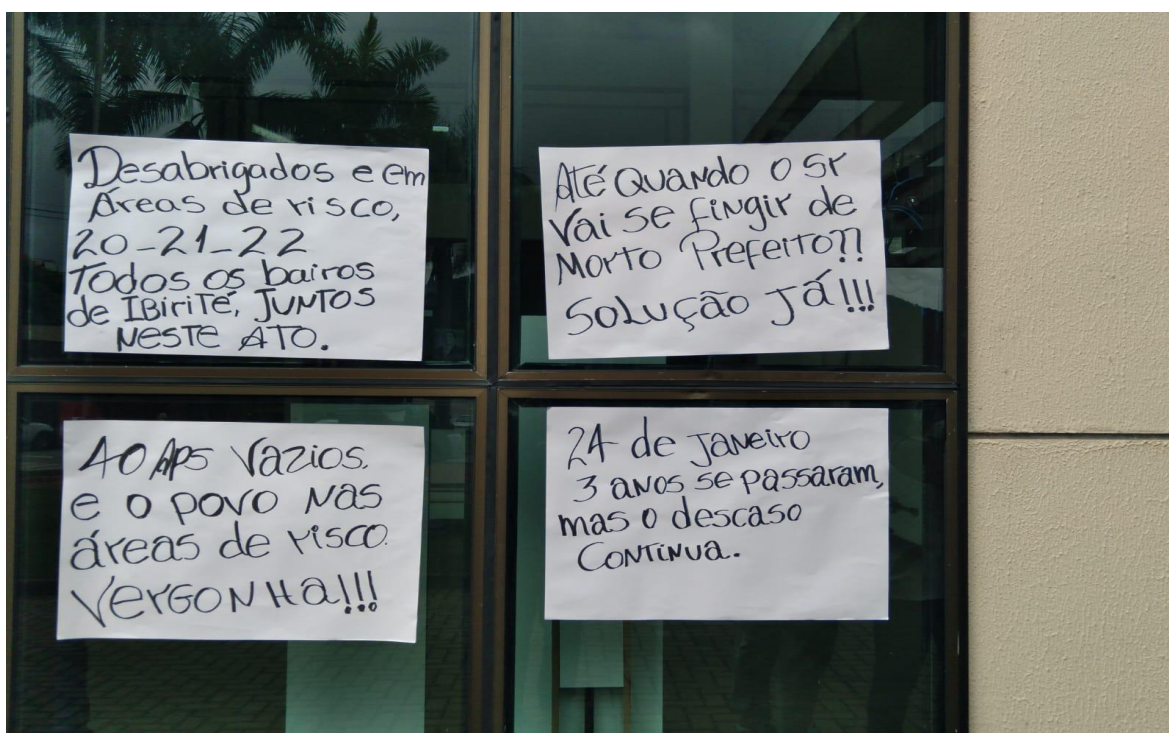 Desabrigados e em
Áreas de risco,
20-21-22
Todos os bairos
de IBirité, JUNTOS
NESTE ATO.
Até QUANDO O Sr
Vai se fiNgir de
Morto Prefeito??
SOLUÇÃO Já!!!
40 APS Vazios.
e o povo Nas
áreas de risco.
VerGONHa!!!
24 de JaNeiro
3 aNos se passaram,
mas o descaso
CONTiNUa.